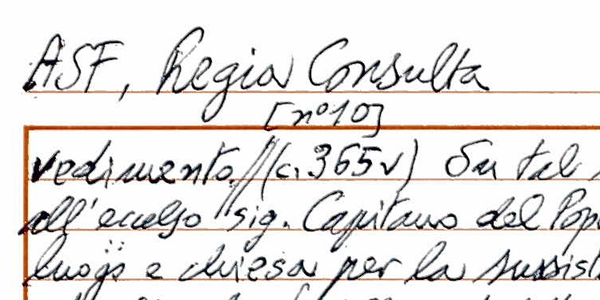 ASF, Regia Consulta
[n° 10]
vedimento//(c. 365v) Su tal
all'eccelso sig. Capitano del Pop
luogo e chiesa per la sussist